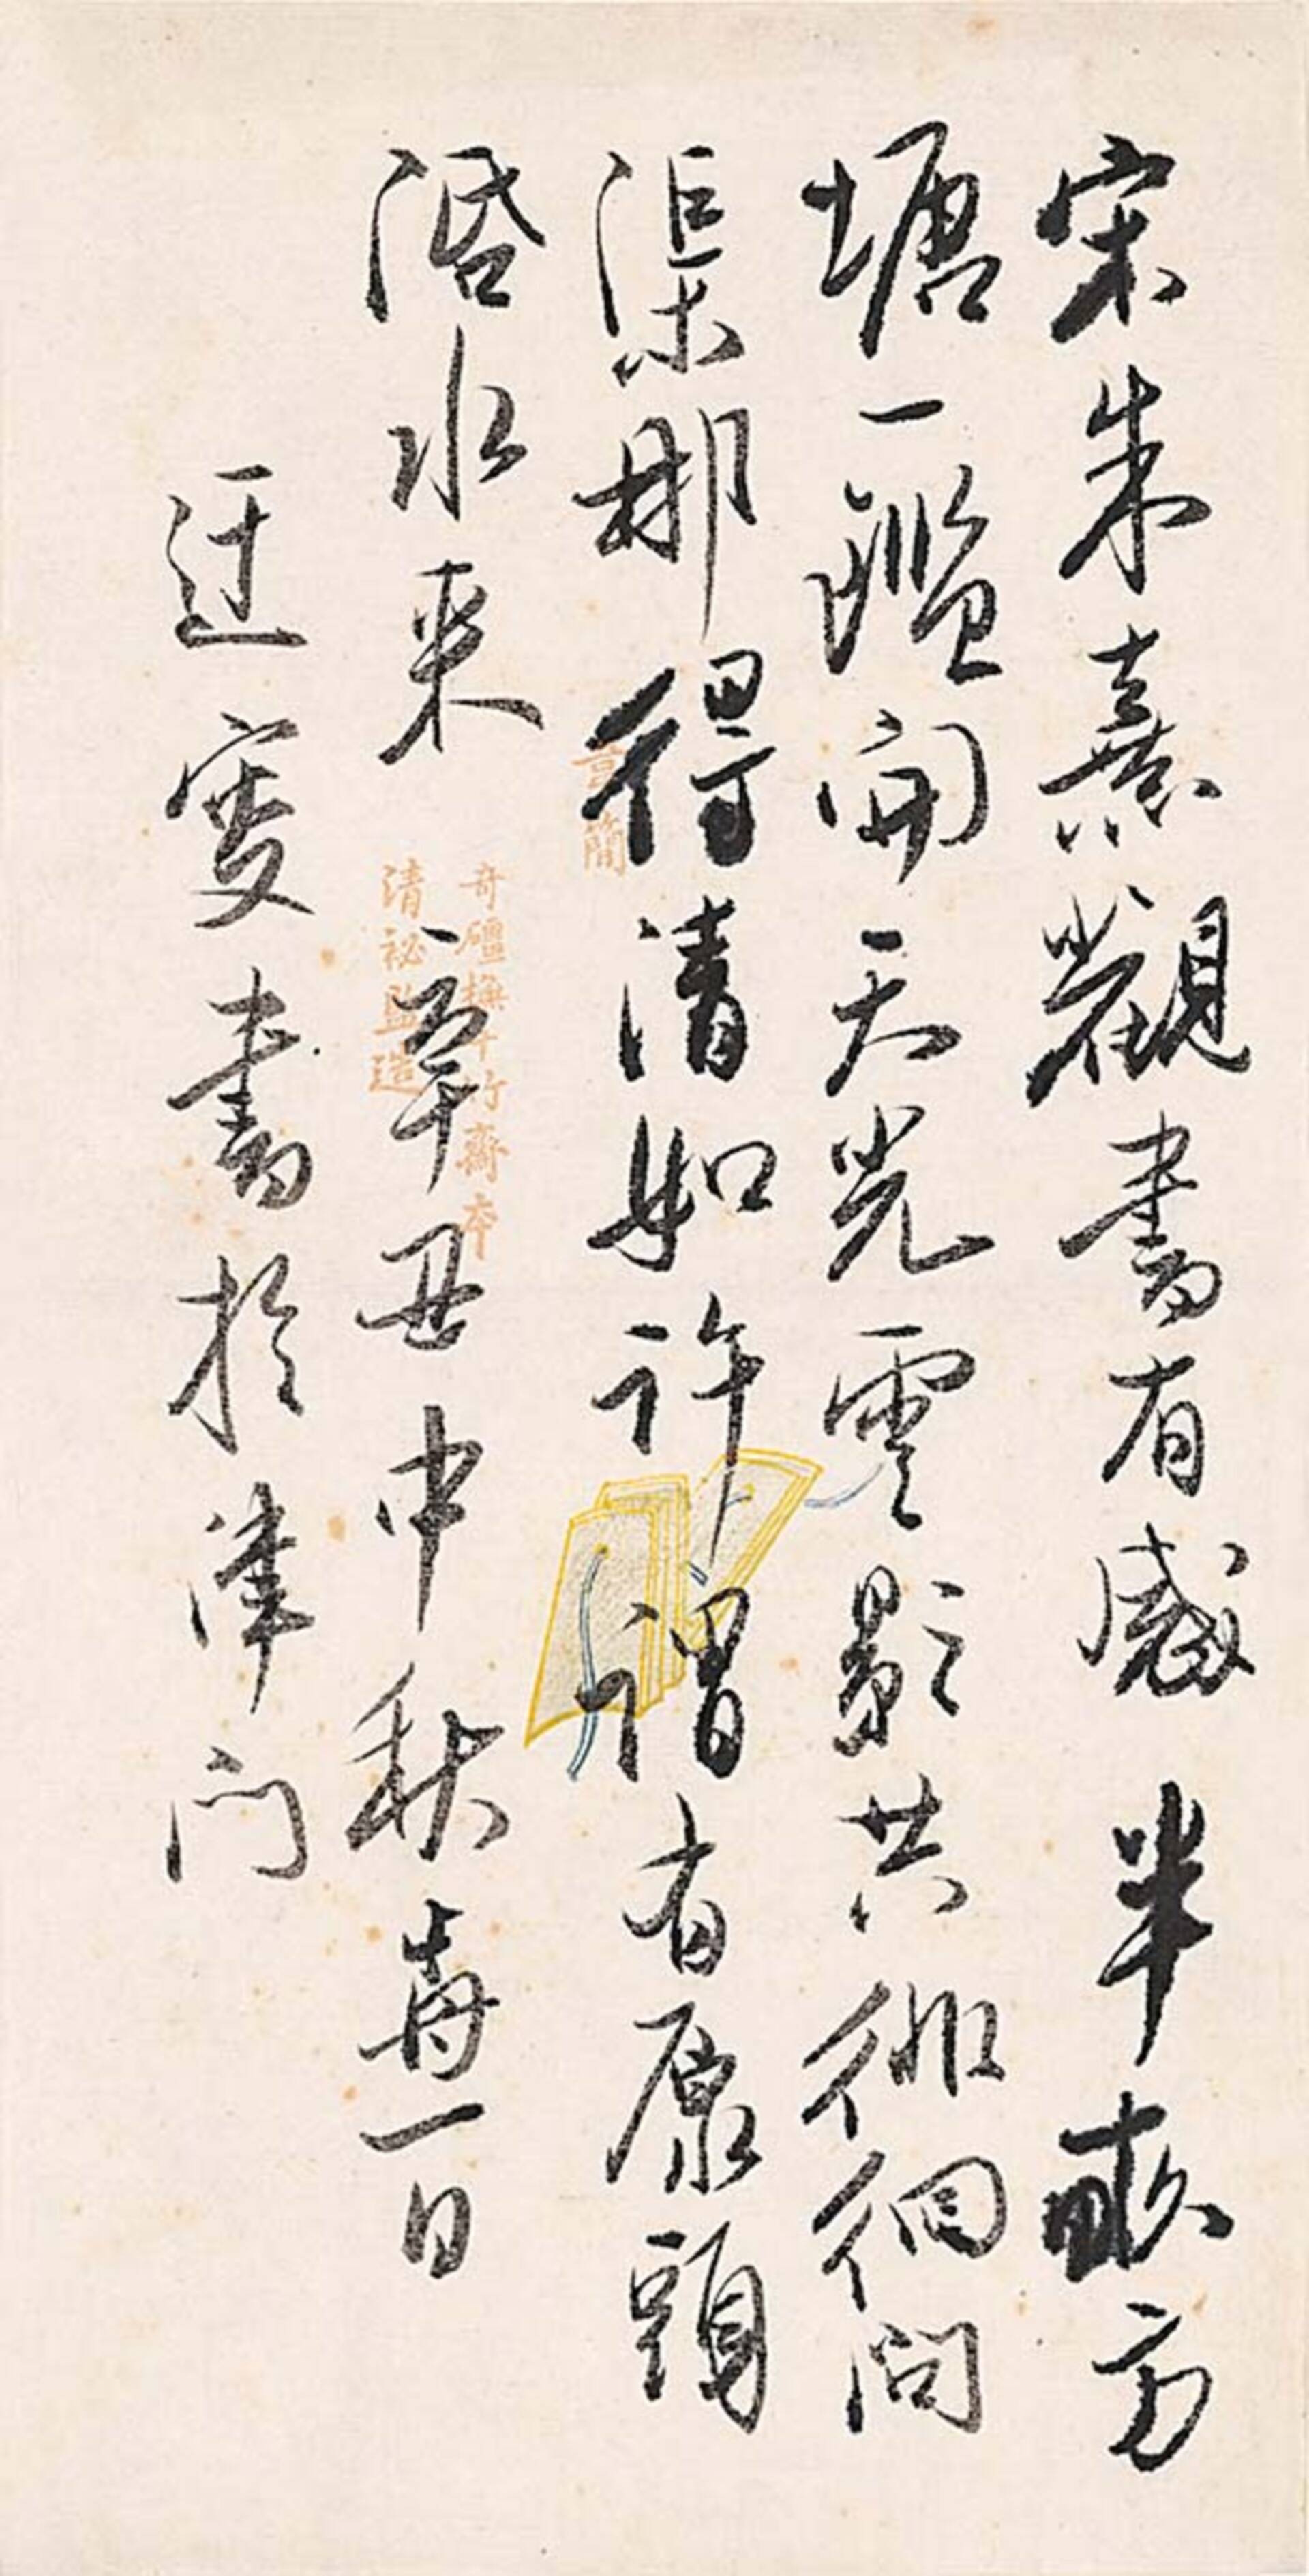 宋朱熹觀書有感 半畝方
塘一鑑開天光雲影共徘徊問
渠那得清如許謂有原頭
活水來 辛丑中秋一日
迂叟書於津門
簡
奇礓橅十竹齋本
清祕監造